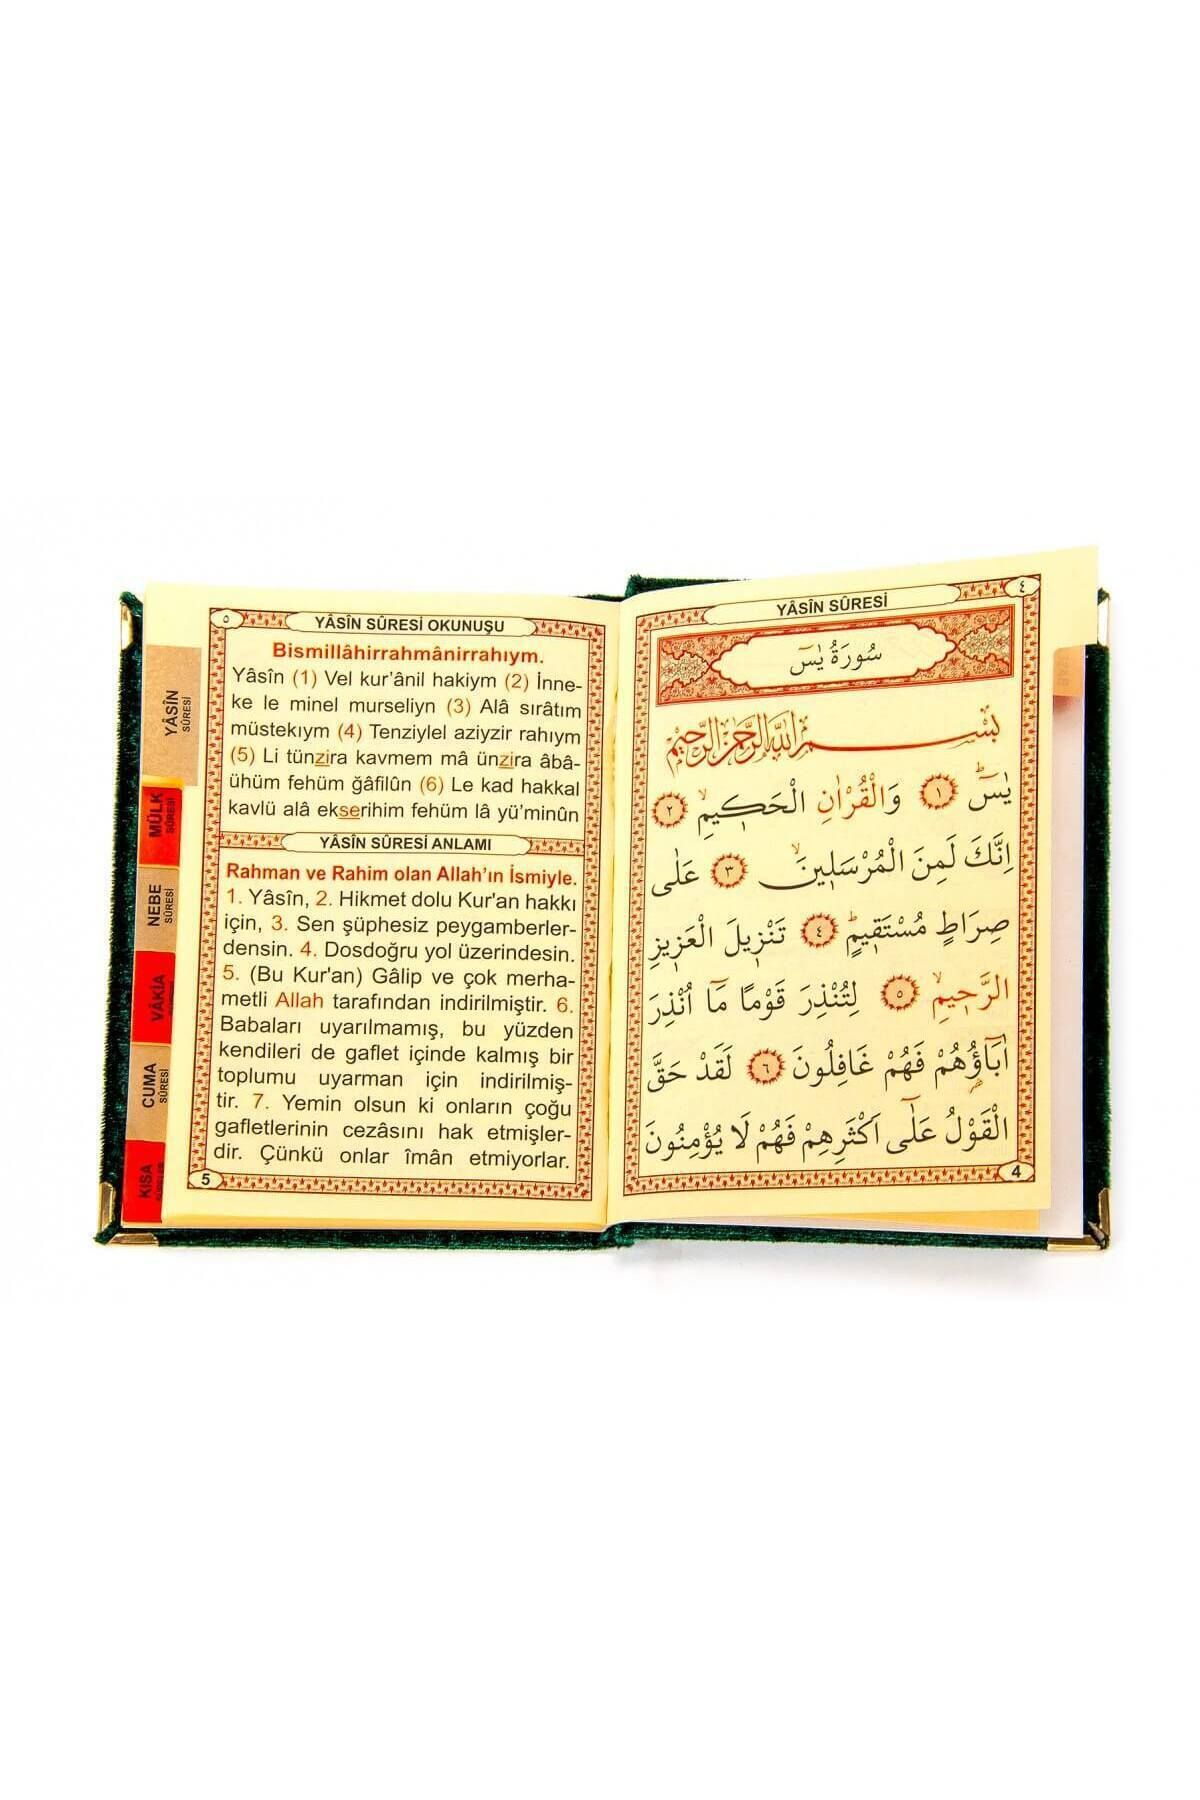 ٥
YÂSÎN SÛRESİ OKUNUŞU
Bismillâhirrahmânirrahıym.
Yâsîn (1) Vel kur'ânil hakiym (2) İnne-
ke le minel murseliyn (3) Alâ sırâtım
müstekıym (4) Tenziylel aziyzir rahıym
(5) Li tünzira kavmem mâ ünzira âbâ-
ühüm fehüm ğâfilûn (6) Le kad hakkal
kavlü alâ ekserihim fehüm lâ yü'minûn
YÂSÎN SÛRESİ ANLAMI
Rahman ve Rahim olan Allah'ın İsmiyle.
1. Yâsîn, 2. Hikmet dolu Kur'an hakkı
için, 3. Sen şüphesiz peygamberler-
densin. 4. Dosdoğru yol üzerindesin.
5. (Bu Kur'an) Gâlip ve çok merha-
metli Allah tarafından indirilmiştir. 6.
Babaları uyarılmamış, bu yüzden
kendileri de gaflet içinde kalmış bir
toplumu uyarman için indirilmiş-
tir. 7. Yemin olsun ki onların çoğu
gafletlerinin cezâsını hak etmişler-
dir. Çünkü onlar îmân etmiyorlar.
5
YÂSÎN
SÛRESİ
MÜLK
SÛRESİ
NEBE
SÛRESİ
VÂKIA
CUMA
SÛRESİ
KISA
٤
YÂSÎN SÛRESİ
سُورَةُ يٰسٓ
بِسْمِ اللّٰهِ الرَّحْمٰنِ الرَّحٖيمِ
يٰسٓ ۚ ﴿١﴾ وَالْقُرْاٰنِ الْحَكٖيمِ ۙ ﴿٢﴾
اِنَّكَ لَمِنَ الْمُرْسَلٖينَ ۙ ﴿٣﴾ عَلٰى
صِرَاطٍ مُسْتَقٖيمٍ ؕ ﴿٤﴾ تَنْزٖيلَ الْعَزٖيزِ
الرَّحٖيمِ ۙ ﴿٥﴾ لِتُنْذِرَ قَوْمًا مَٓا اُنْذِرَ
اٰبَٓاؤُ۬هُمْ فَهُمْ غَافِلُونَ ﴿٦﴾ لَقَدْ حَقَّ
الْقَوْلُ عَلٰٓى اَكْثَرِهِمْ فَهُمْ لَا يُؤْمِنُونَ
4